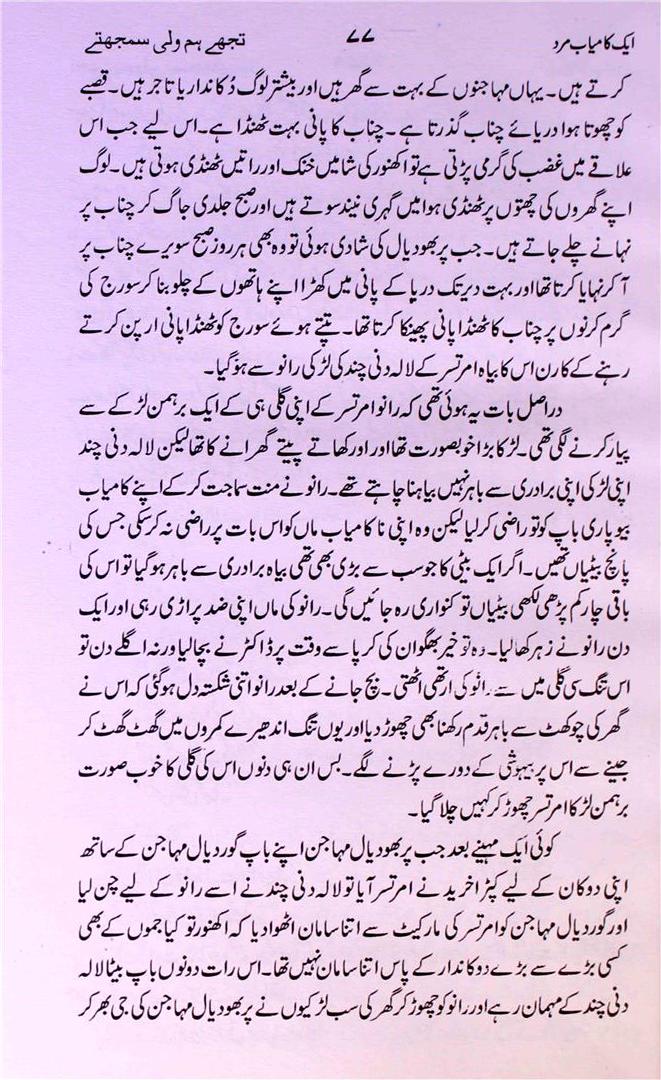 ایک کامیاب مرد ۷۷ تجھے ہم ولی سمجھتے
کرتے ہیں۔ یہاں مہاجنوں کے بہت سے گھر ہیں اور بیشتر لوگ دُکاندار یا تاجر ہیں۔ قصبے
کو چھوتا ہوا دریائے چناب گذرتا ہے۔ چناب کا پانی بہت ٹھنڈا ہے۔ اس لیے جب اس
علاقے میں غضب کی گرمی پڑتی ہے تو اکھنور کی شامیں خنک اور راتیں ٹھنڈی ہوتی ہیں۔ لوگ
اپنے گھروں کی چھتوں پر ٹھنڈی ہوا میں گہری نیند سوتے ہیں اور صبح جلدی جاگ کر چناب پر
نہانے چلے جاتے ہیں۔ جب پربھودیال کی شادی ہوئی تو وہ بھی ہر روز صبح سویرے چناب پر
آ کر نہایا کرتا تھا اور بہت دیر تک دریا کے پانی میں کھڑا اپنے ہاتھوں کے چلو بنا کر سورج کی
گرم کرنوں پر چناب کا ٹھنڈا پانی پھینکا کرتا تھا۔ تپتے ہوئے سورج کو ٹھنڈا پانی ارپن کرتے
رہنے کے کارن اس کا بیاہ امرتسر کے لالہ دنی چند کی لڑکی رانو سے ہوگیا۔
دراصل بات یہ ہوئی تھی کہ رانو امرتسر کے اپنی گلی ہی کے ایک برہمن لڑکے سے
پیار کرنے لگی تھی۔ لڑکا بڑا خوبصورت تھا اور اور کھاتے پیتے گھرانے کا تھا لیکن لالہ دنی چند
اپنی لڑکی اپنی برادری سے باہر نہیں بیاہنا چاہتے تھے۔ رانو نے منت سماجت کر کے اپنے کامیاب
بیوپاری باپ کو تو راضی کر لیا لیکن وہ اپنی ناکامیاب ماں کو اس بات پر راضی نہ کرسکی جس کی
پانچ بیٹیاں تھیں۔ اگر ایک بیٹی کا جو سب سے بڑی بھی تھی بیاہ برادری سے باہر ہوگیا تو اس کی
باقی چار کم پڑھی لکھی بیٹیاں تو کنواری رہ جائیں گی۔ رانو کی ماں اپنی ضد پر اڑی رہی اور ایک
دن رانو نے زہر کھا لیا۔ وہ تو خیر بھگوان کی کرپا سے وقت پر ڈاکٹر نے بچا لیا ورنہ اگلے دن تو
اس تنگ سی گلی میں سے رانو کی ارتھی اٹھتی۔ بچ جانے کے بعد رانو اتنی شکستہ دل ہوگئی کہ اس نے
گھر کی چوکھٹ سے باہر قدم رکھنا بھی چھوڑ دیا اور یوں تنگ اندھیرے کمروں میں گھٹ گھٹ کر
جینے سے اس پر بیہوشی کے دورے پڑنے لگے۔ بس ان ہی دنوں اس کی گلی کا خوب صورت
برہمن لڑکا امرتسر چھوڑ کر کہیں چلا گیا۔
کوئی ایک مہینے بعد جب پربھودیال مہاجن اپنے باپ گوردیال مہاجن کے ساتھ
اپنی دوکان کے لیے کپڑا خریدنے امرتسر آیا تو لالہ دنی چند نے اسے رانو کے لیے چن لیا
اور گوردیال مہاجن کو امرتسر کی مارکیٹ سے اتنا سامان اٹھوا دیا کہ اکھنور تو کیا جموں کے بھی
کسی بڑے سے بڑے دوکاندار کے پاس اتنا سامان نہیں تھا۔ اس رات دونوں باپ بیٹا لالہ
دنی چند کے مہمان رہے اور رانو کو چھوڑ کر گھر کی سب لڑکیوں نے پربھودیال مہاجن کی جی بھر کر